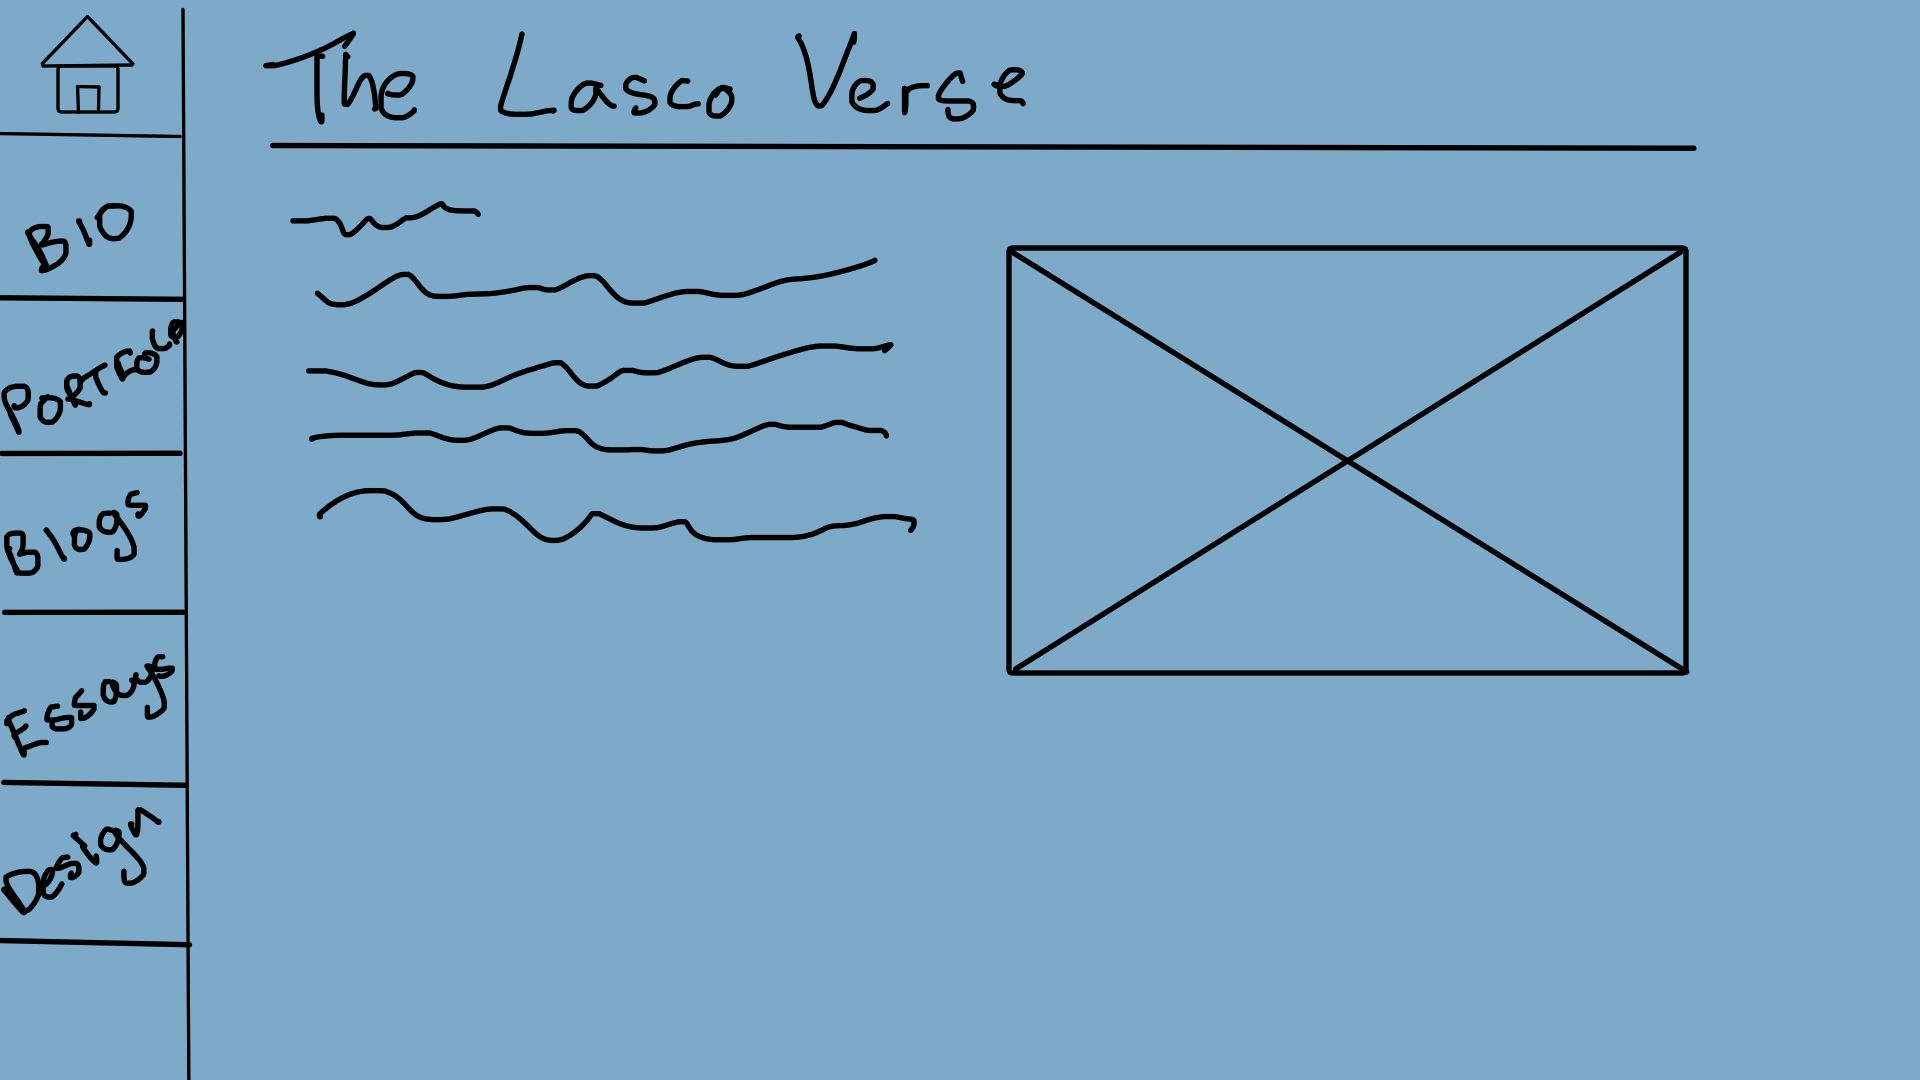 The Lasco Verse
BIO
Blogs
Essays
Design